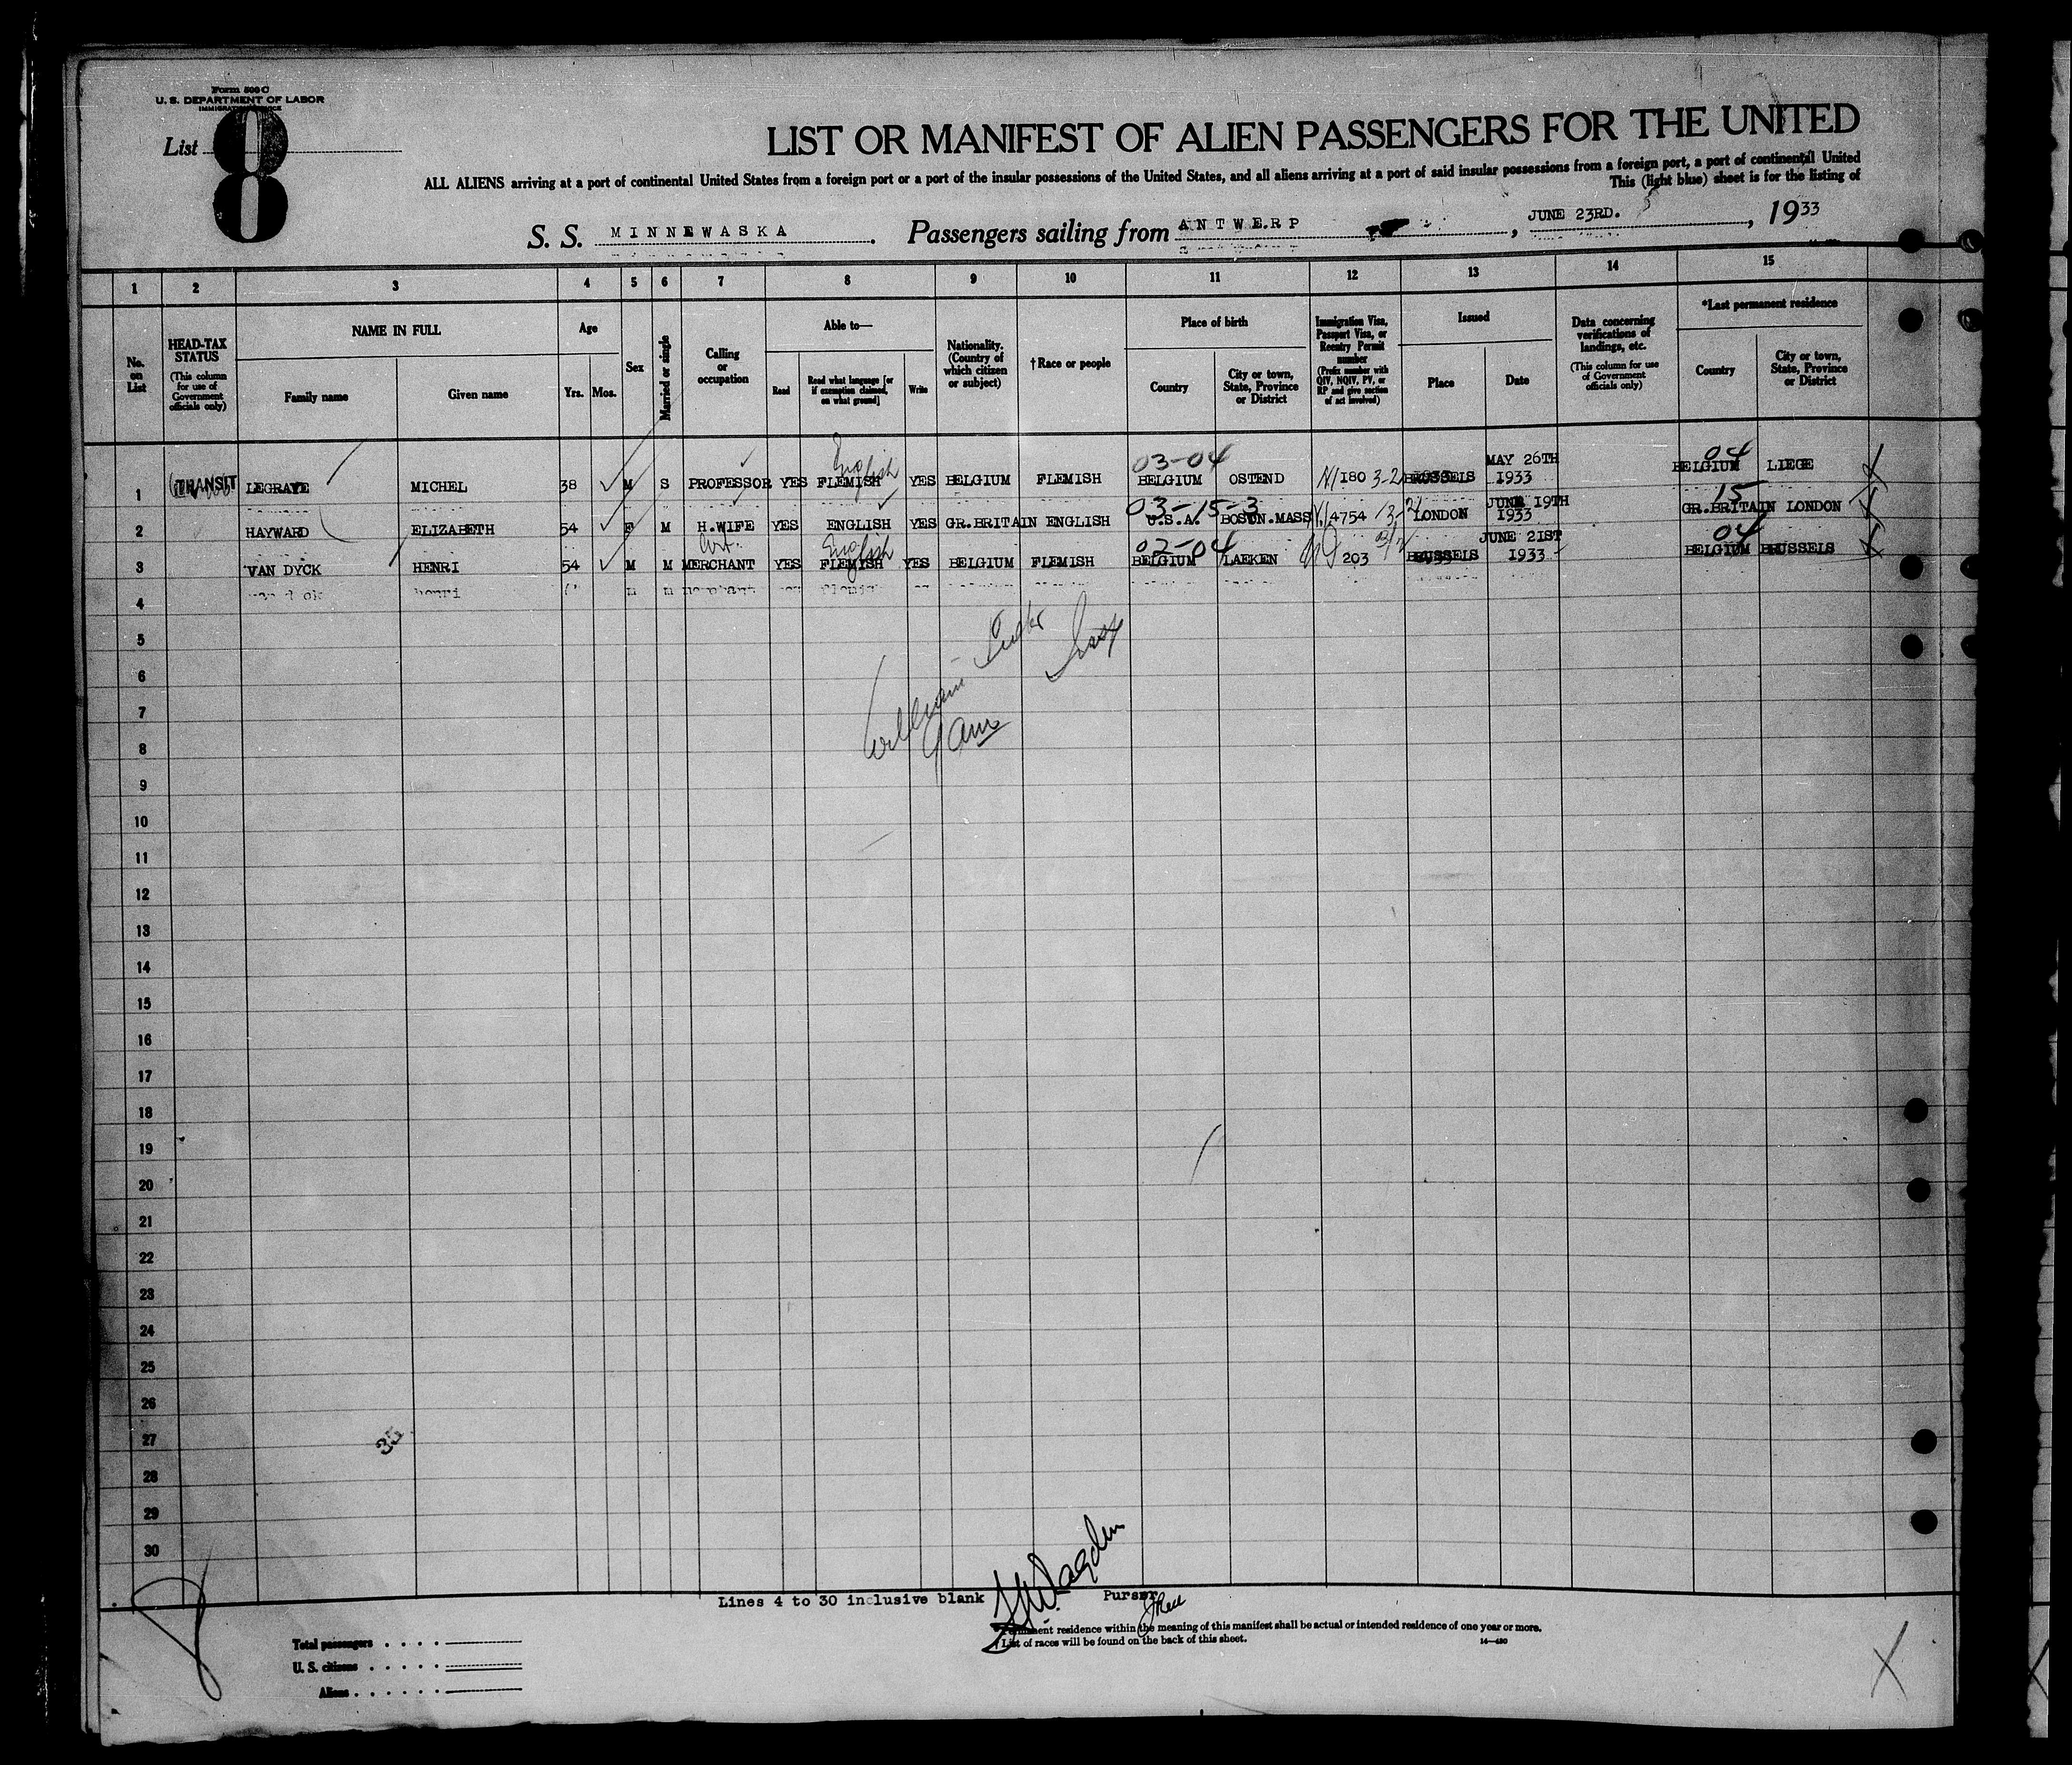 Form 500 C
U. S. DEPARTMENT OF LABOR
IMMIGRATION SERVICE
List 8
LIST OR MANIFEST OF ALIEN PASSENGERS FOR THE UNITED
ALL ALIENS arriving at a port of continental United States from a foreign port or a port of the insular possessions of the United States, and all aliens arriving at a port of said insular possessions from a foreign port, a port of continental United
This (light blue) sheet is for the listing of
S. S. MINNEWASKA. Passengers sailing from ANTWERP, JUNE 23RD., 1933
1 2 3 4 5 6 7 8 9 10 11 12 13 14 15
No. on List
HEAD-TAX STATUS (This column for use of Government officials only)
NAME IN FULL
Family name
Given name
Age
Yrs. Mos.
Sex
Married or single
Calling or occupation
Able to—
Read
Read what language [or if exemption claimed, on what ground]
Write
Nationality. (Country of which citizen or subject)
†Race or people
Place of birth
Country
City or town, State, Province or District
Immigration Visa, Passport Visa, or Reentry Permit number (Prefix number with QIV, NQIV, PV, or RP and give section of act involved)
Issued
Place
Date
Data concerning verifications of landings, etc. (This column for use of Government officials only)
*Last permanent residence
Country
City or town, State, Province or District
English 03-04 MAY 26TH 04
1 TRANSIT LEGRAYE MICHEL 38 M S PROFESSOR YES FLEMISH YES BELGIUM FLEMISH BELGIUM OSTEND 180 BRUSSELS 1933 BELGIUM LIEGE
03-15-3 JUNE 19TH 15
2 HAYWARD ELIZABETH 54 F M H.WIFE YES ENGLISH YES GR.BRITAIN ENGLISH U.S.A. BOSTN.MASS 4754 LONDON 1933 GR.BRITAIN LONDON
Art. English 02-04 JUNE 21ST 04
3 VAN DYCK HENRI 54 M M MERCHANT YES FLEMISH YES BELGIUM FLEMISH BELGIUM LAEKEN 203 BRUSSELS 1933 BELGIUM BRUSSELS
4
5
6
7
8
9
10
11
12
13
14
15
16
17
18
19
20
21
22
23
24
25
26
27
28
29
30
35
Lines 4 to 30 inclusive blank
Purser
*Permanent residence within the meaning of this manifest shall be actual or intended residence of one year or more.
†List of races will be found on the back of this sheet.
14—430
Total passengers
U. S. citizens
Aliens